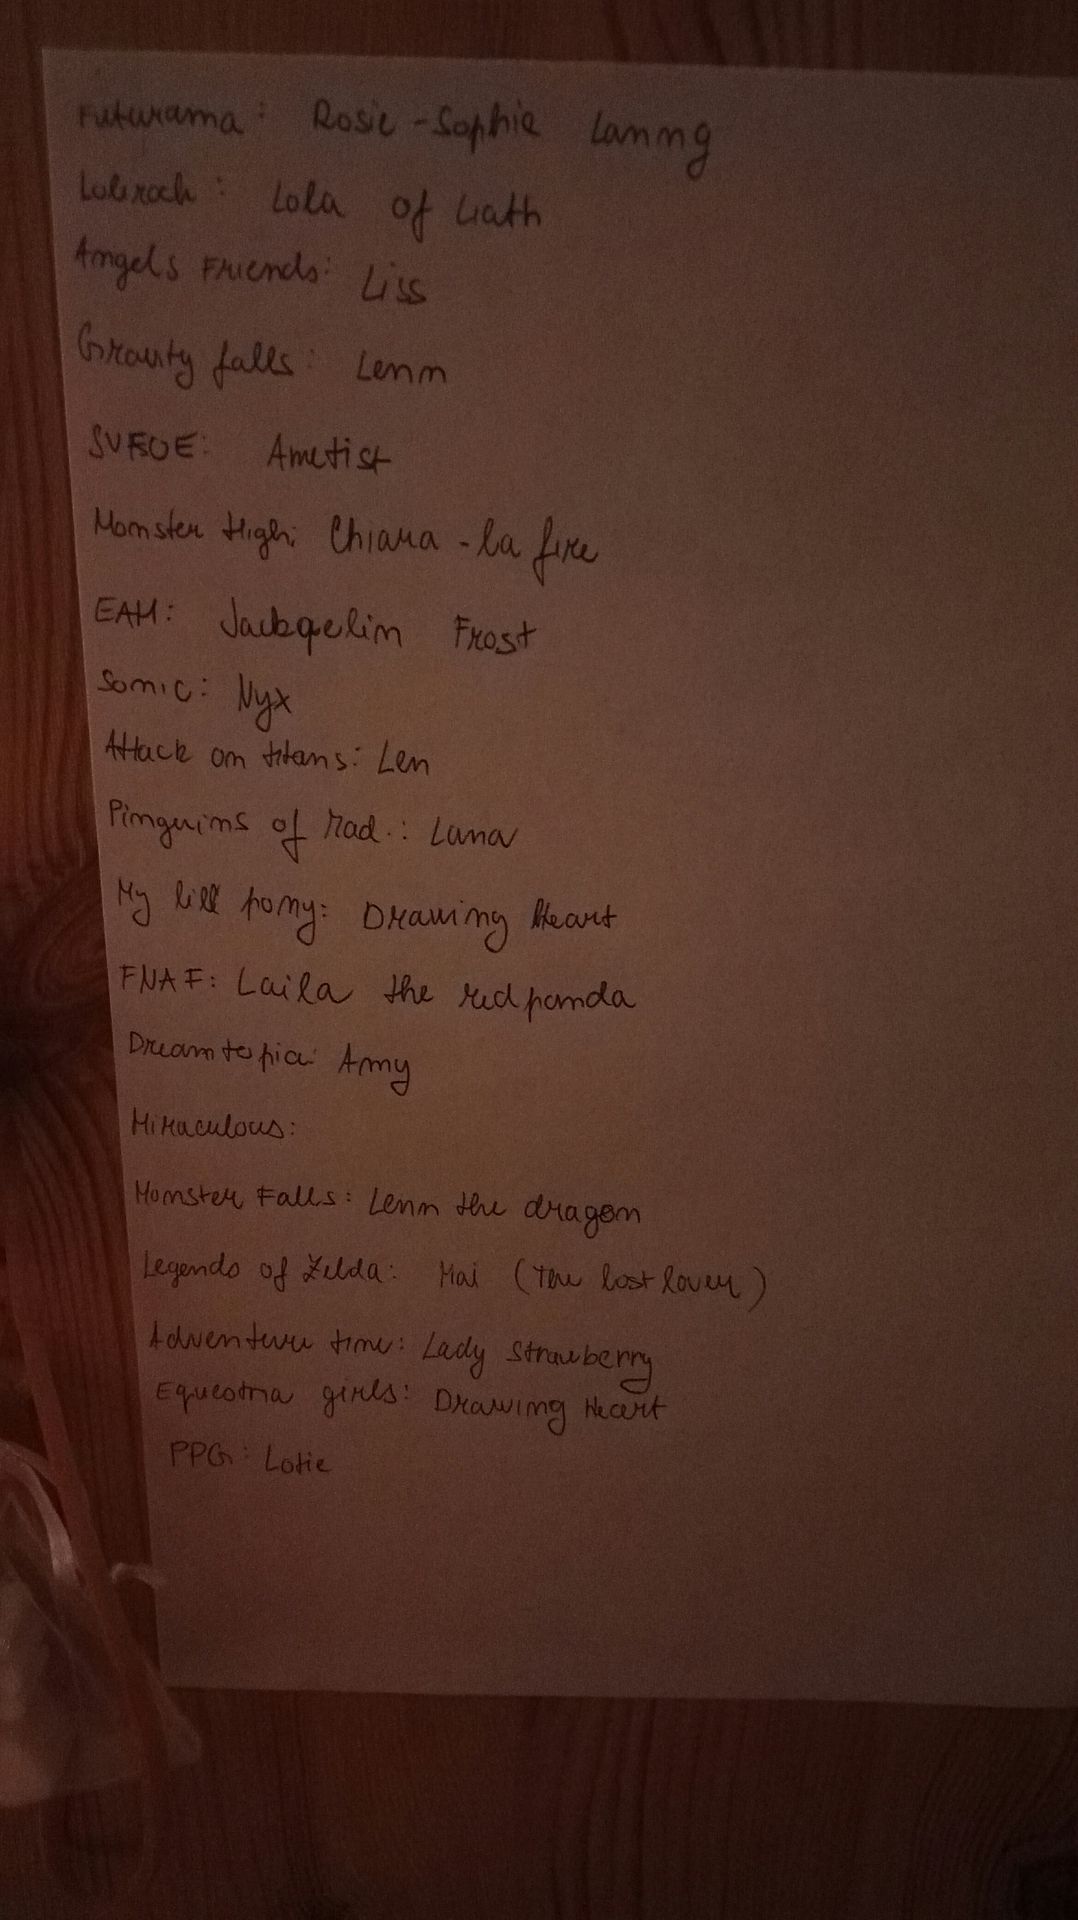 Futurama: Rosie-Sophie Lanng
Lolirock: Lola of
Angels Friends: Liss
Gravity falls: Lenn
Ametist
Monster High: Chiara-la fire
EAH: Jackqelin Frost
Sonic: Nyx
Attack on titans: Len
Pinguins of Mad.: Lana
My littl pony: Drawing Heart
FNAF: Laila the red panda
Dreamtopia: Amy
Miraculous:
Monster Falls: Lenn the dragon
Legends of Zelda: Mai (The lost lover)
Adventure time: Lady Strawberry
Equestria girls: Drawing Heart
PPG: Lotie